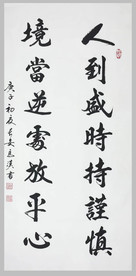 人到盛時持謹慎
境當逆處放平心
庚子初夏